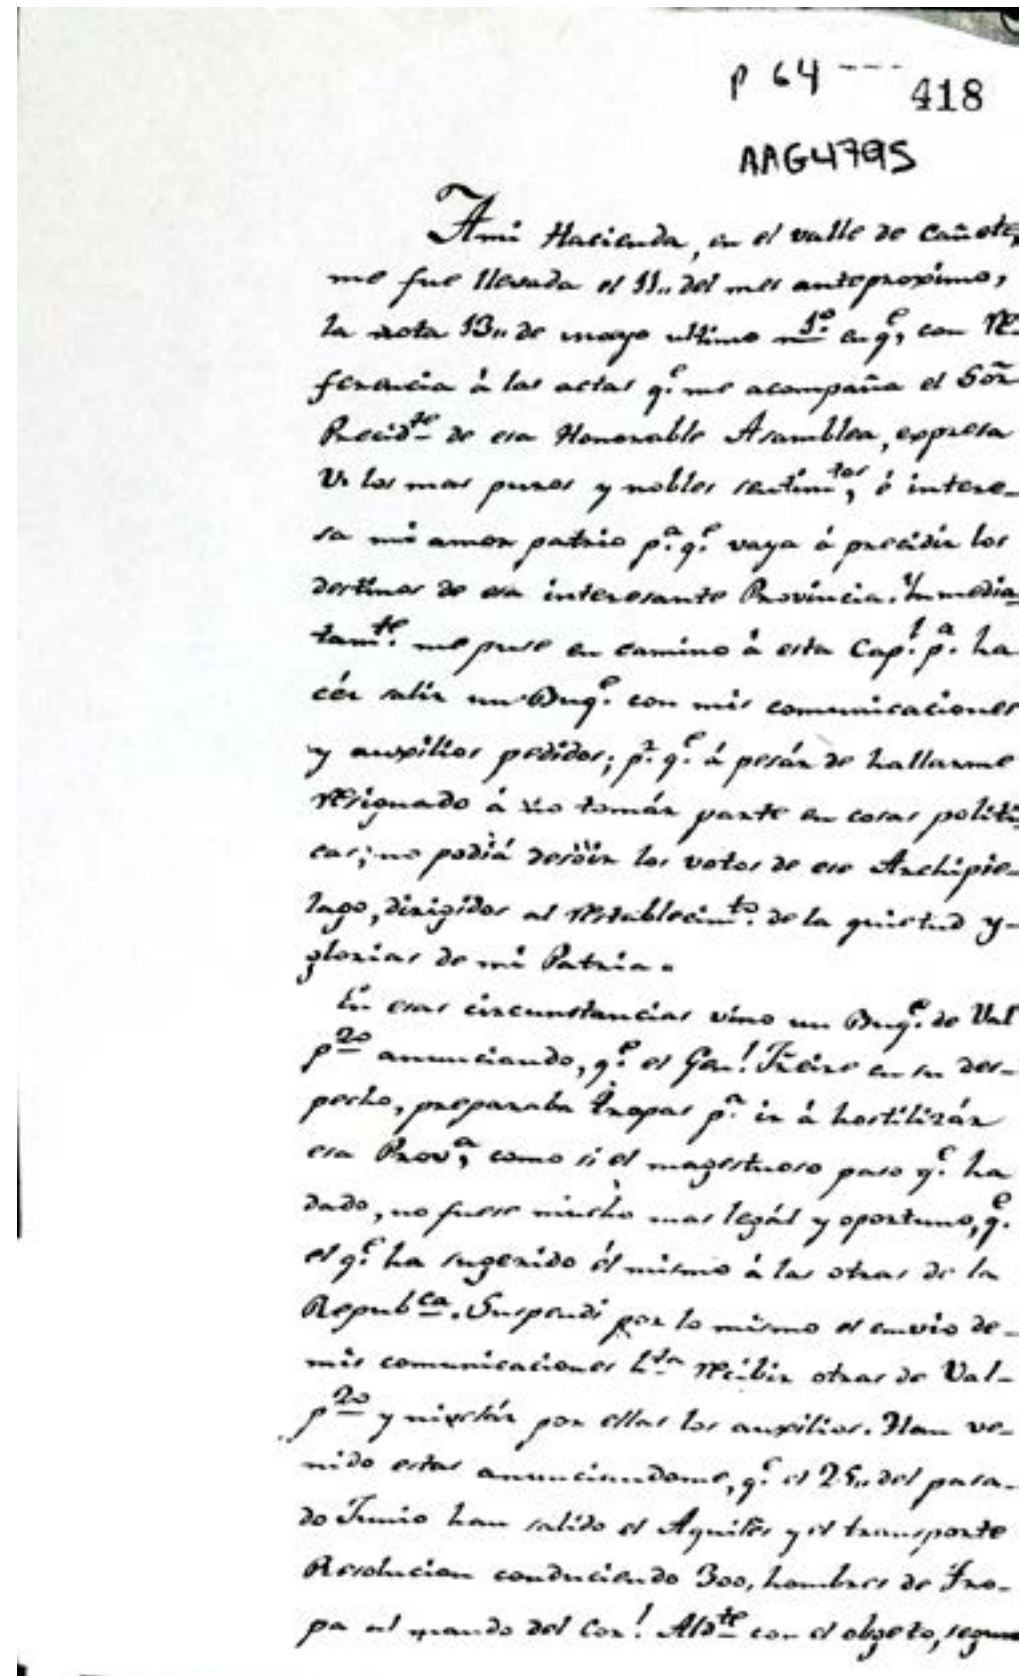 p 64 ---
418
AAG4795
A mi Hacienda, en el valle de Cañete,
me fue llevada el 11,, del mes anteproximo,
la nota 13,, de mayo ultimo nº 1º en qe, con re-
ferencia á las actas qe me acompaña el Sōr
Precidte de esa Honorable Asamblea, expresa
V. los mas puros y nobles sentimtos, é intere-
sa mi amor patrio pa qe vaya á precidir los
destinos de esa interesante Provincia. Inmedia-
tamte me puse en camino á esta Capl pa ha
cér salir un Buqe con mis comunicaciones
y auxilios pedidos; pr qe á pesár de hallarme
resignado á no tomár parte en cosas politi
cas; no podiá desóir los votos de ese Archipie-
lago, dirigidos al restablecimto de la quietud y-
glorias de mi Patria.
En esas circunstancias vino un Buqe de Val
pzo anunciando, qe el Genl Freire en su des-
pecho, preparaba tropas pa ir á hostilizár
esa Prova, como si el magestuoso paso qe ha
dado, no fuese mucho mas legál y oportuno, qe
el qe ha sugerido él mismo á las otras de la
Republca. Suspendi por lo mismo el envio de-
mis comunicaciones hta recibir otras de Val-
pzo y nivelár por ellas los auxilios. Han ve-
nido estas anunciandome, qe el 25,, del pasa-
do Junio han salido el Aquiles y el transporte
Resolucion conduciendo 300, hombres de tro-
pa al mando del Corl Aldte con el objeto, segun